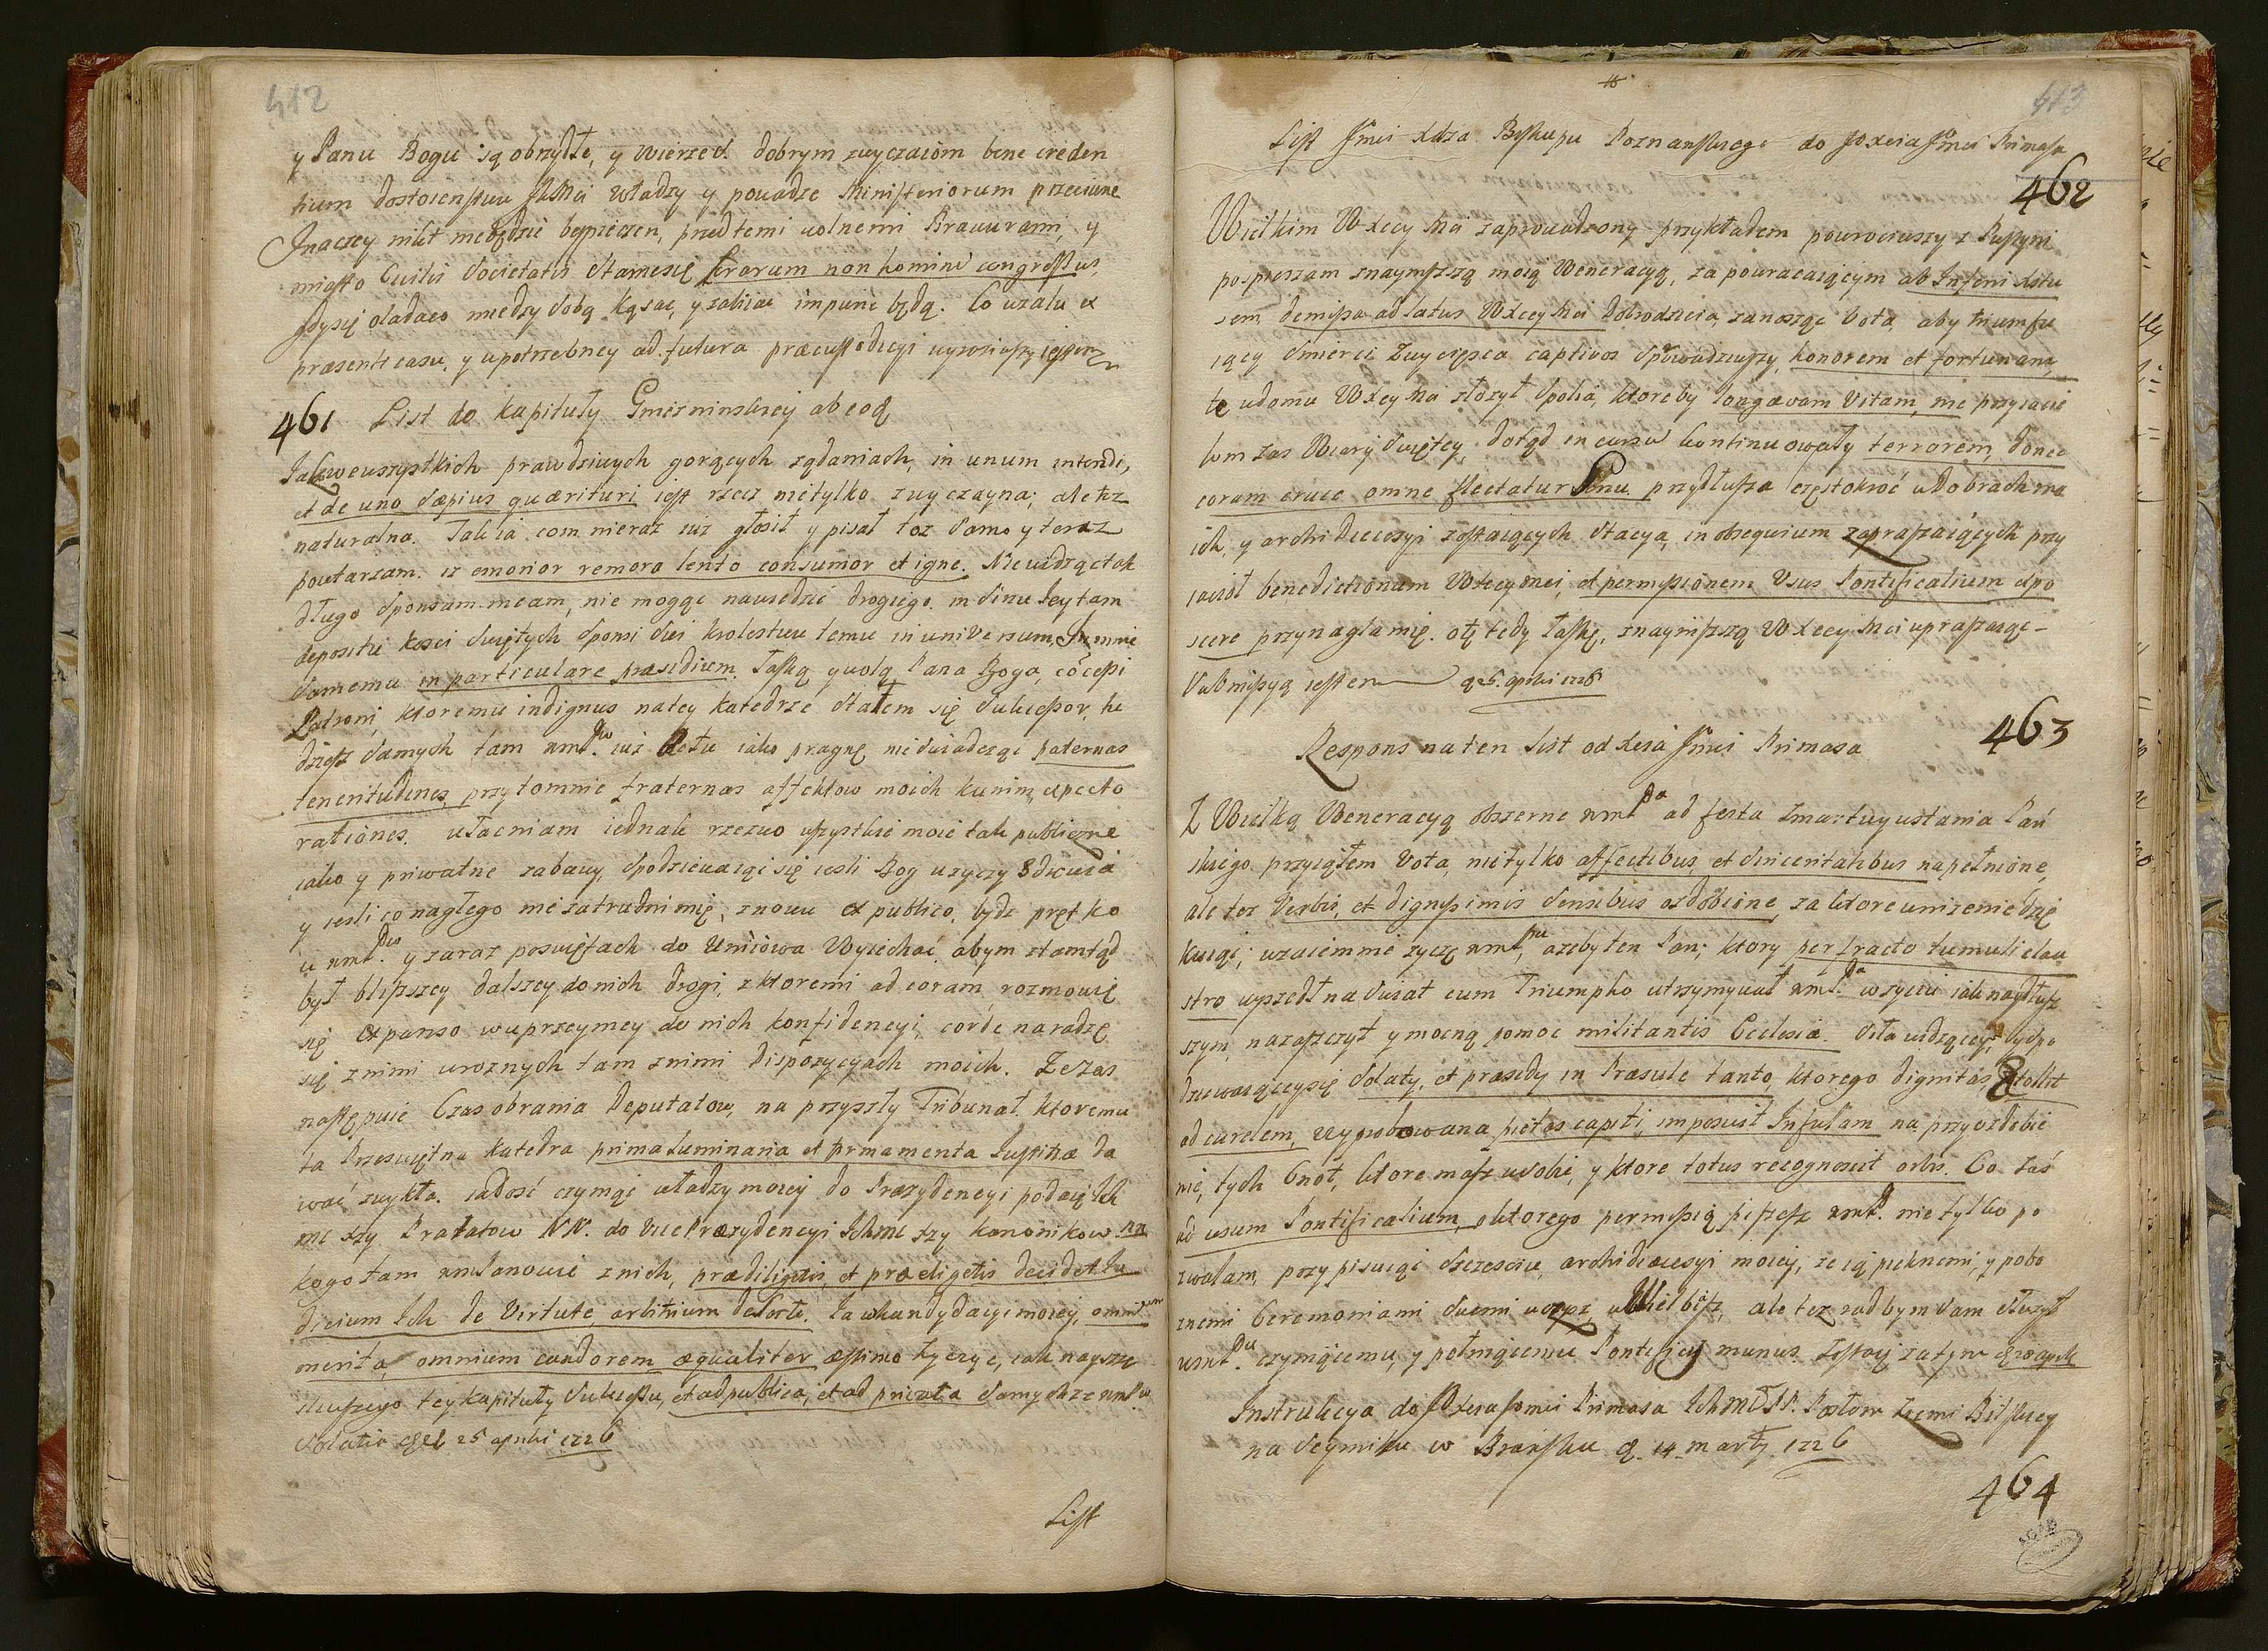 412
y Panu Bogu są obrzydłe, y wierzeć dobrym zwyczaiom bene creden
tium dostoienstwu JKMci władzy y powadze Ministeriorum przeciwne
Inaczey nikt niebędzie bespieczen, przed temi wolnemi Brawurami, y
miasto Civilis Societatis staniesię ferarum non hominū congressus,
gdysię oladaco między sobą kąsać, y zabiiać impunè będą. Co wzalu ex
præsenti casu, y upotrzebney ad futura præcustodicyi wyraziwszy iestem
461 List do Kapituły Gniezninskiey ab eodē
Iako we wszystkich prawdziwych gorących żądaniach, in unum intendi,
et de uno sæpius quærituri iest rzecz nietylko zwyczayna; ale też
naturalna. Tak ia com nieraz iuż głosił y pisał toż samo y teraz
powtarzam. iż emorior remora lento consumor et igne. Nie widząc tak
długo Sponsam meam, nie mogąc nawiedzić drogiego in sinu Iey tam
depositū kości świętych Sponsi Sui krolestwu temu in universum, a mnie
samemu in particulare præsidium. Łaską y wolą Pana Boga, co cessi
Patroni, ktoremu indignus na tey katedrze stałem się Sukcessor, ke
dzięsz samych tam wmPw iuż lietu iako pragnę nieświadcząc paternas
teneritudines, przytomnie fraternas affektow moich ku nim, expecto
rationes. ułacniam iednak rzezwo wszystkie moie tak publiczne
iako y priwatne zabawy, spodziewaiąc się iesli Bog użyczy zdrowia
y iesli co nagłego nie zatrudni mię, znowu ex publico, bydź prętko
u wmPw. y zaraz poświętach do Uniiowa Wyiechać, abym ztamtąd
był bliższey dalszey do nich drogi, z ktoremi ad coram rozmowię
się expanso w uprzeymey do nich konfidencyi, corde naradzę
się z nimi w roznych tam z nimi Dispozycyach moich. Że zas
następuie Czas obrania Deputatow, na przyszły Tribunał, ktoremu
ta Prześwietna Katedra prima Luminaria et firmamenta Iustitiæ da
wać zwykła. zadość czyniąc władzy moiey do Præzydencyi podaię Ich
mc xzy Prałatow NN. do Vice Præzydencyi Ichmc xzy kanonikow NN
kogo tam wmPanowie z nich, prædiligetis, et præeligetis decidet Iu
dicium Ich de Virtute, arbitrium de Sorte. Ia w kandydacyi moiey, omnium
merita, omnium candorem æqualiter æstimo życzyć, iak nayszczę
sliwszego tey kapituły Sukcessu, et ad publica, et ad privata samych ze wmPw
Solatia 25 aprilis 1726
List
413
List Jmci Xdza Biskupa Poznanskiego do JOXcia Jmci Primasa
462
Wielkim WXcey Mci zaprowadzony przykładem powrociwszy z Pustyni
pospieszam znayniższą moią Weneracyą, za powracaiącym ab Inferni ditu
sem demissa ad latus WXcey Mci Dobrodzieia, zanosząc Vota, aby triumfu
iący śmierci Zwycięzca captivos sprowadziwszy, honorem et fortunam,
te w domu WXcey Mci złożył Spolia, ktoreby longævam Vitam, nie przyiacio
łom zas Wiary Swiętey, dotąd in cursu kontinuowały terrorem, donec
coram cruce omne flectatur Genu. przydłuższa częstokroć w Dobrach mo
ich, y archi Diecezyi zostaiących Stacya, in obsequium zapraszaiących przy
iaciół benedictionum WXcey mci, et permissionem Usus Pontificalium expo
scere przynagla mię. o tę tedy łaskę, znayniższą WXcey Mci upraszaiąc
Submissyą iestem 25 aprilis 1726
463
Respons na ten List od Xcia Jmci Primasa
Z Wielką Weneracyą obszerne wmPa ad festa Zmartwywstania Pań
skiego przyiąłem Vota, nietylko affectibus, et sinceritatibus napełnione,
ale też Verbis, et dignissimis Sensibus ozdobione, za ktore unizenie dzię
kuiąc; wzaiemnie życzę wmPu, ażeby ten Pan; ktory perfracto tumuli clau
stro wyszedł na Swiat cum Triumpho utrzymywał wmPa w zyciu iak naydłuż
szym, na zaszczyt y mocną pomoc militantis Ecclesiæ. Dła widzącey, y spo
dziewaiąceysię Solaty, et præsidy in Præsule tanto, ktorego dignitas extollit
ad cardem, wyprobowana pietas capiti, imposuit Infulam na przyozdobie
nie, tych Cnot, ktore masz w sobie, y ktore totus recognoscit orbis. Co zaś
ad usum Pontificalium, o ktorego permissią piszesz wmP. nietylko po
zwalam, przypisuiąc szczęściu, archidiæcesyi moiey, że ią pieknemi, y pobo
żnemi Ceremoniami swemi uczcz, uWielbisz, ale też rad bym sam służył
wmPu. czyniącemu, y pełniącemu Pontificis munus. Zostaię zatym 28 aprilis
Instrukcya do JOXcia Jomci Primasa IchMciPP. Posłow Ziemi Bilskiey
na Seymiku w Brańsku d. 14 marty 1726
464